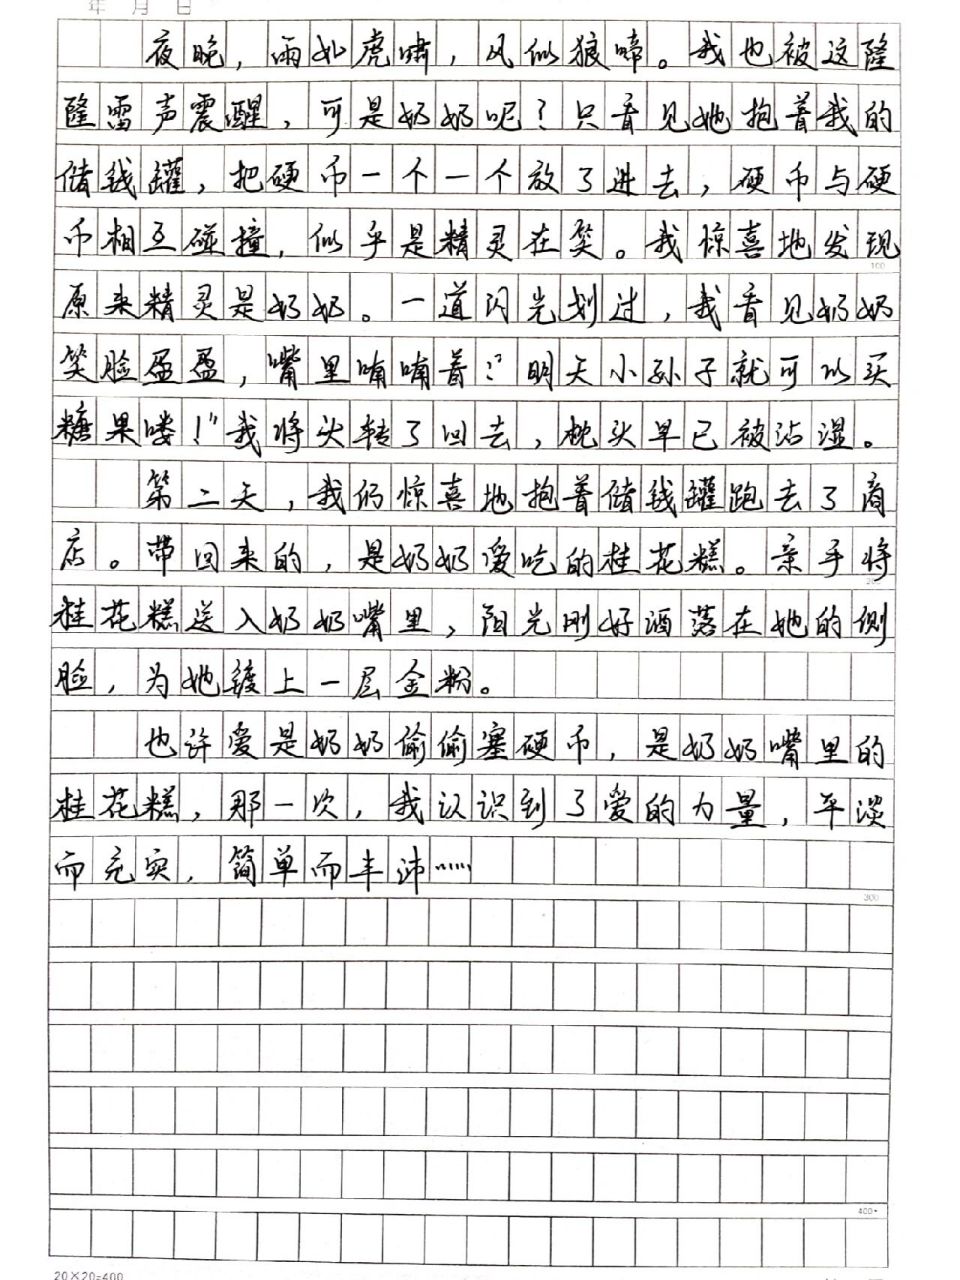 年 月 日
夜晚，雨如虎啸，风似狼啼。我也被这隆
隆雷声震醒，可是奶奶呢？只看见她抱着我的
储钱罐，把硬币一个一个放了进去，硬币与硬
币相互碰撞，似乎是精灵在笑。我惊喜地发现
100
原来精灵是奶奶。一道闪光划过，我看见奶奶
笑脸盈盈，嘴里喃喃着：“明天小孙子就可以买
糖果喽！”我将头转了回去，枕头早已被沾湿。
第二天，我们惊喜地抱着储钱罐跑去了商
店。带回来的，是奶奶爱吃的桂花糕。亲手将
200
桂花糕送入奶奶嘴里，阳光刚好洒落在她的侧
脸，为她镀上一层金粉。
也许爱是奶奶偷偷塞硬币，是奶奶嘴里的
桂花糕，那一次，我认识到了爱的力量，平淡
而充实，简单而丰沛……
300
400
20×20=400